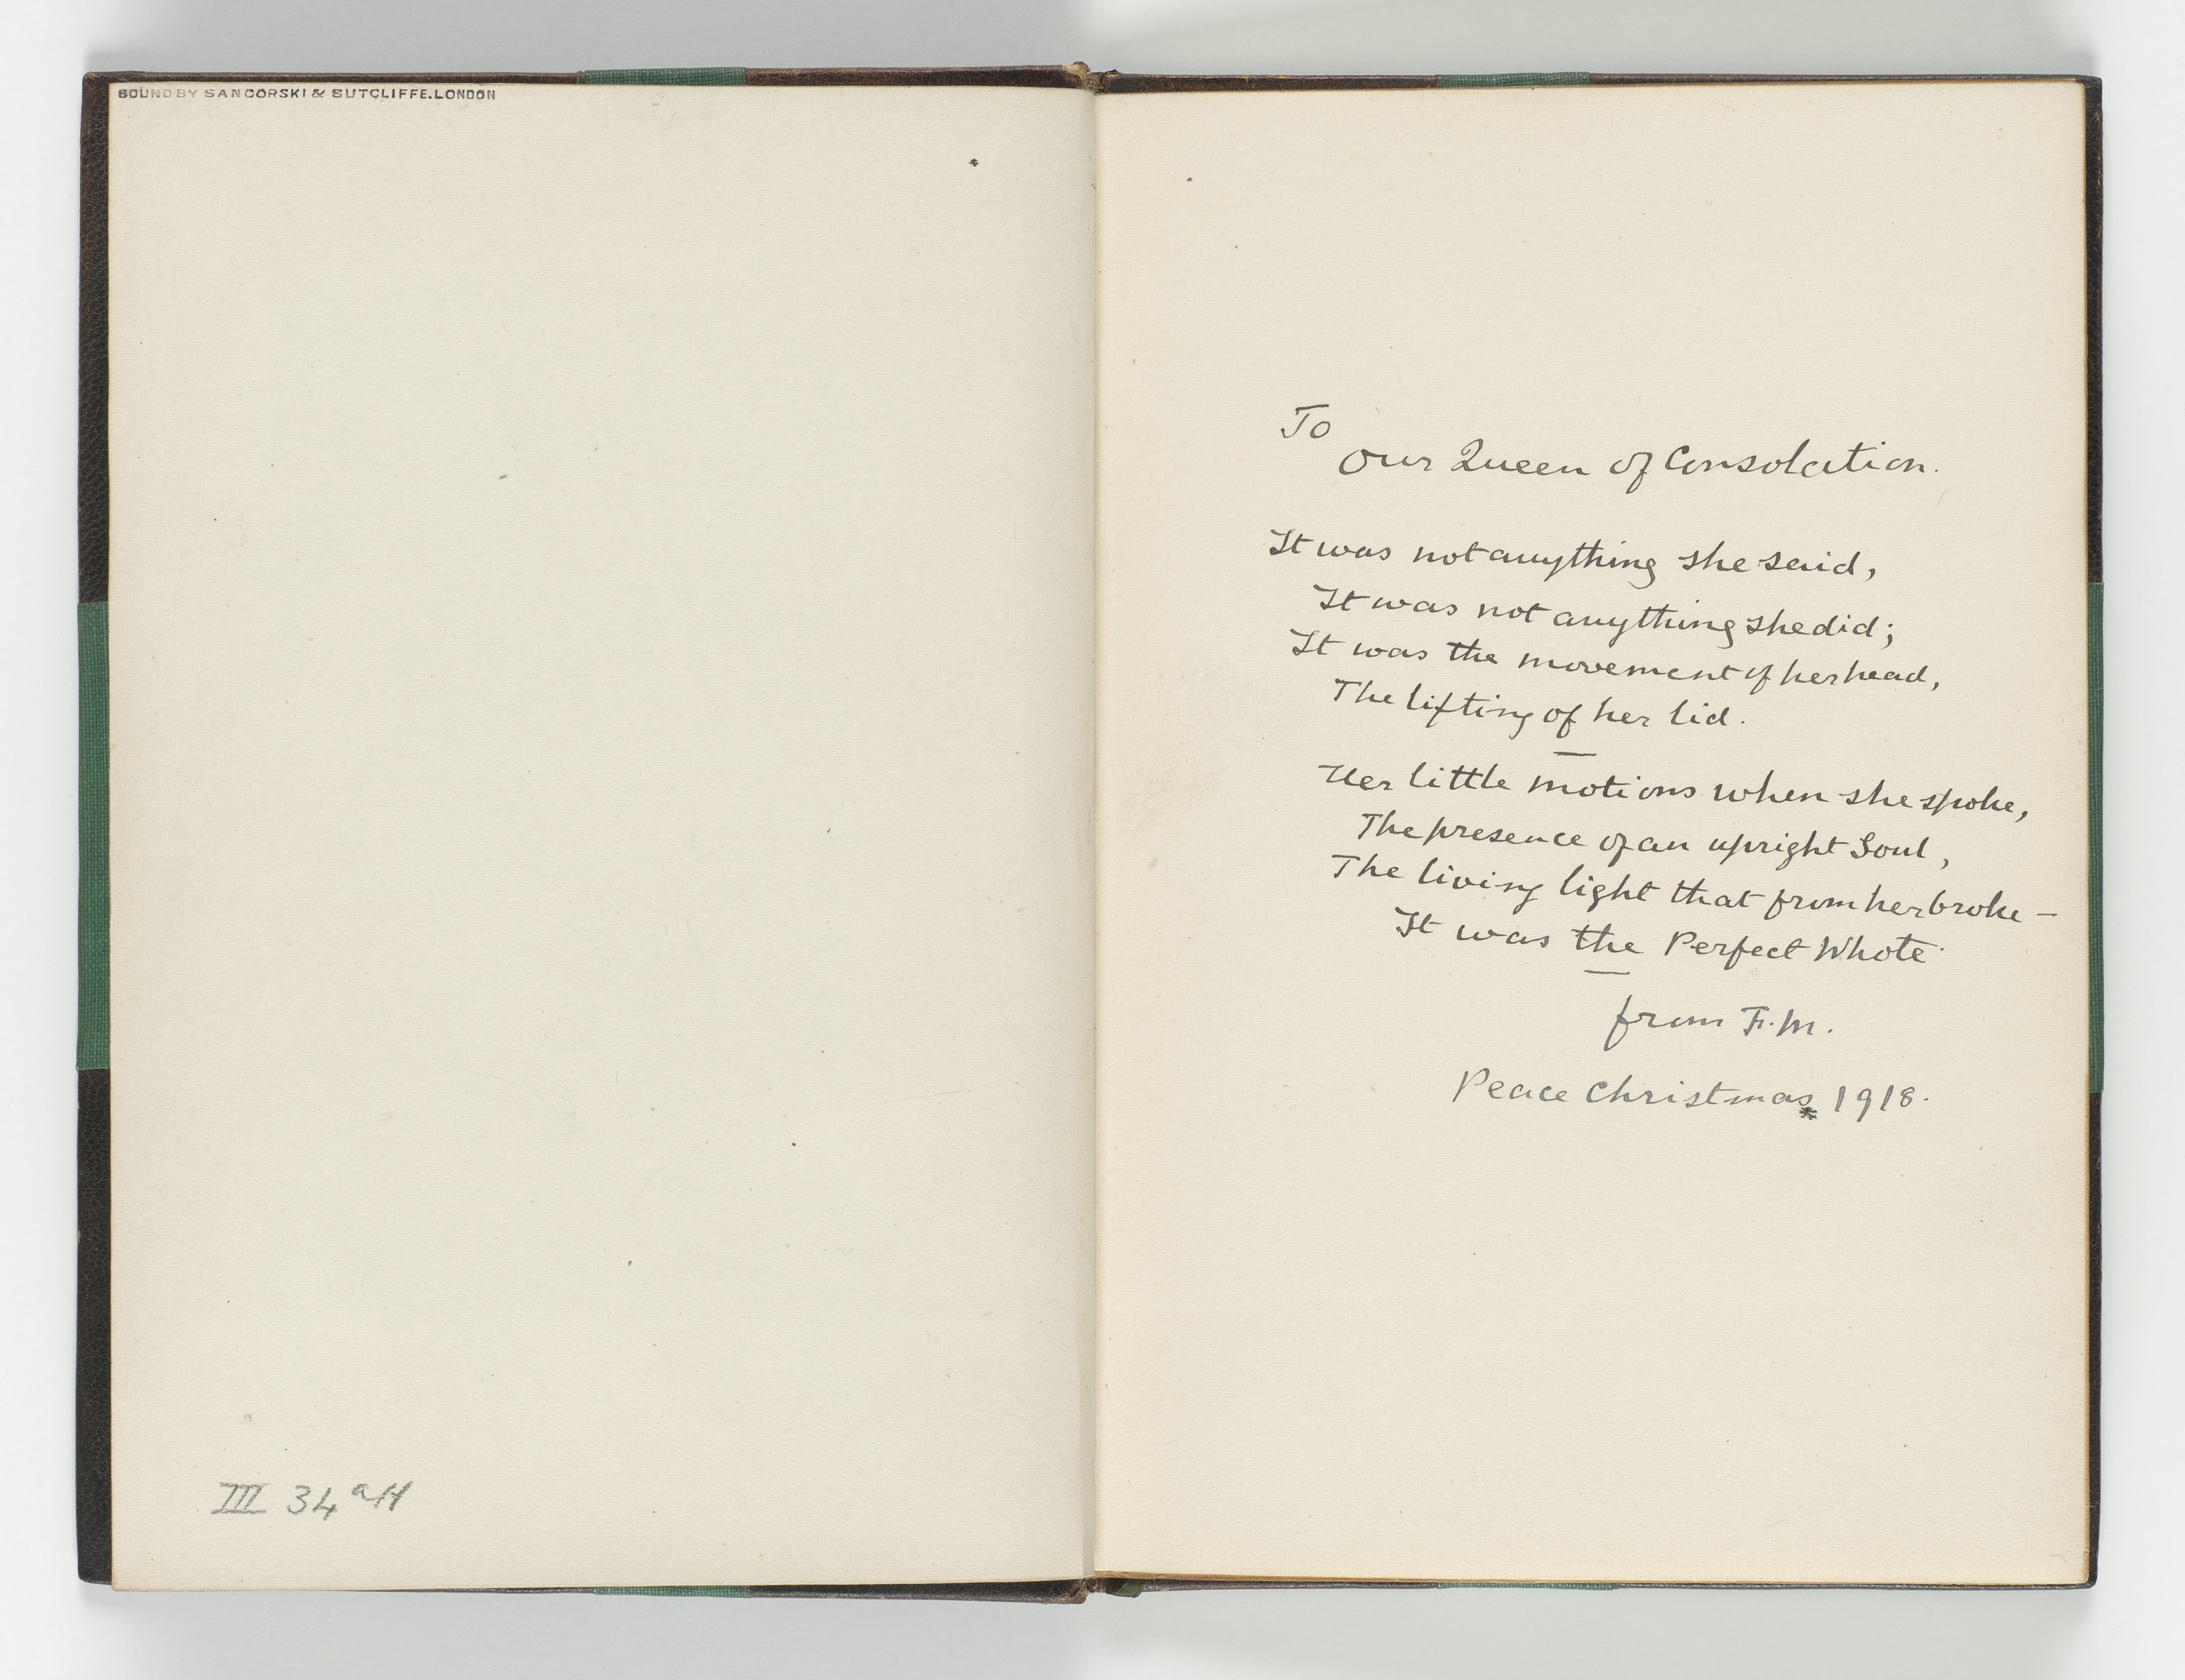 BOUND BY SANGORSKI & SUTCLIFFE. LONDON
III 34 a H
To
Our Queen of Consolation.
It was not anything she said,
It was not anything she did;
It was the movement of her head,
The lifting of her lid.
Her little motions when she spoke,
The presence of an upright Soul,
The living light that from her broke –
It was the Perfect Whole
from F.M.
Peace Christmas 1918.